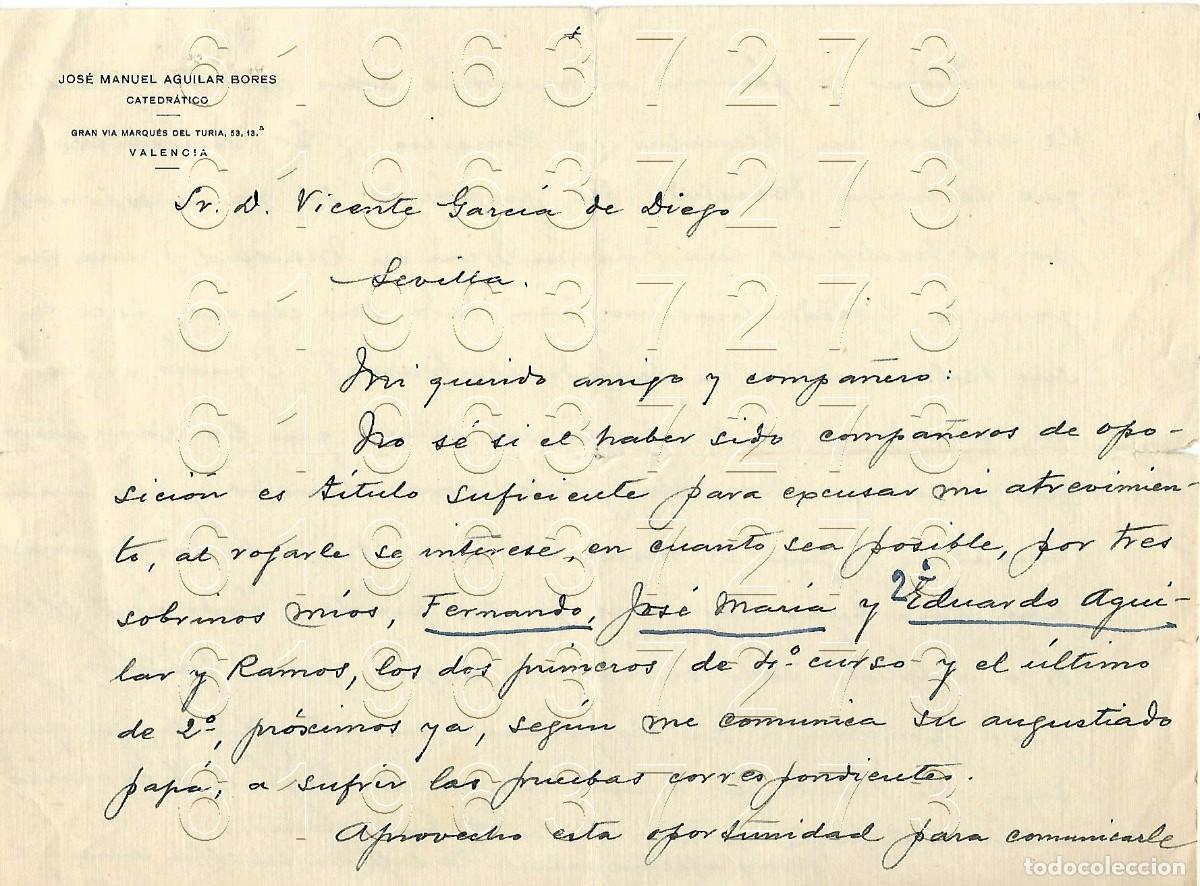 JOSÉ MANUEL AGUILAR BORES
CATEDRÁTICO
GRAN VIA MARQUÉS DEL TURIA, 53, 13.ª
VALENCIA
Sr. D. Vicente García de Diego
Sevilla.
Mi querido amigo y compañero:
No sé si el haber sido compañeros de opo-
sición es título suficiente para excusar mi atrevimien-
to, al rogarle se interese, en cuanto sea posible, por tres
sobrinos míos, Fernando, José María y 2º Eduardo Agui-
lar y Ramos, los dos primeros de 4.º curso y el último
de 2º, próximos ya, según me comunica su angustiado
papá, a sufrir las pruebas correspondientes.
Aprovecho esta oportunidad para comunicarle
619637273
619637273
619637273
619637273
619637273
619637273
619637273
619637273
619637273
619637273
619637273
619637273
619637273
todocoleccion